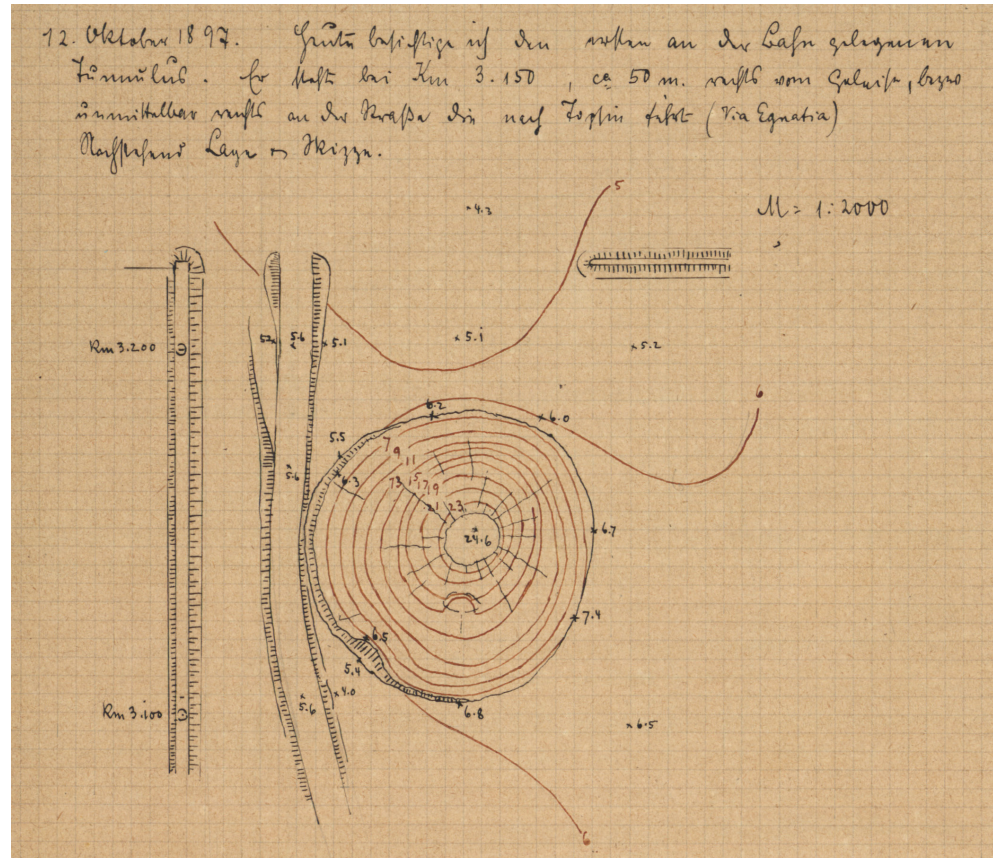 12. Oktober 1897. Heute besichtige ich den ersten an der Bahn gelegenen
Tumulus. Er steht bei Km 3.150, ca 50 m. rechts vom Geleise, bezw
unmittelbar rechts an der Straße die nach Topsin führt (Via Egnatia)
Nachstehend Lage Skizze.
5
4.3
M = 1:2000
Km 3.200
5.6
5.1
5.1
5.2
6
6.2
6.0
5.5
7 9 11
5.6
6.3
13 15 17 19
21 23
24.6
6.7
7.4
6.5
5.4
5.6
4.0
Km 3.100
6.8
6.5
6